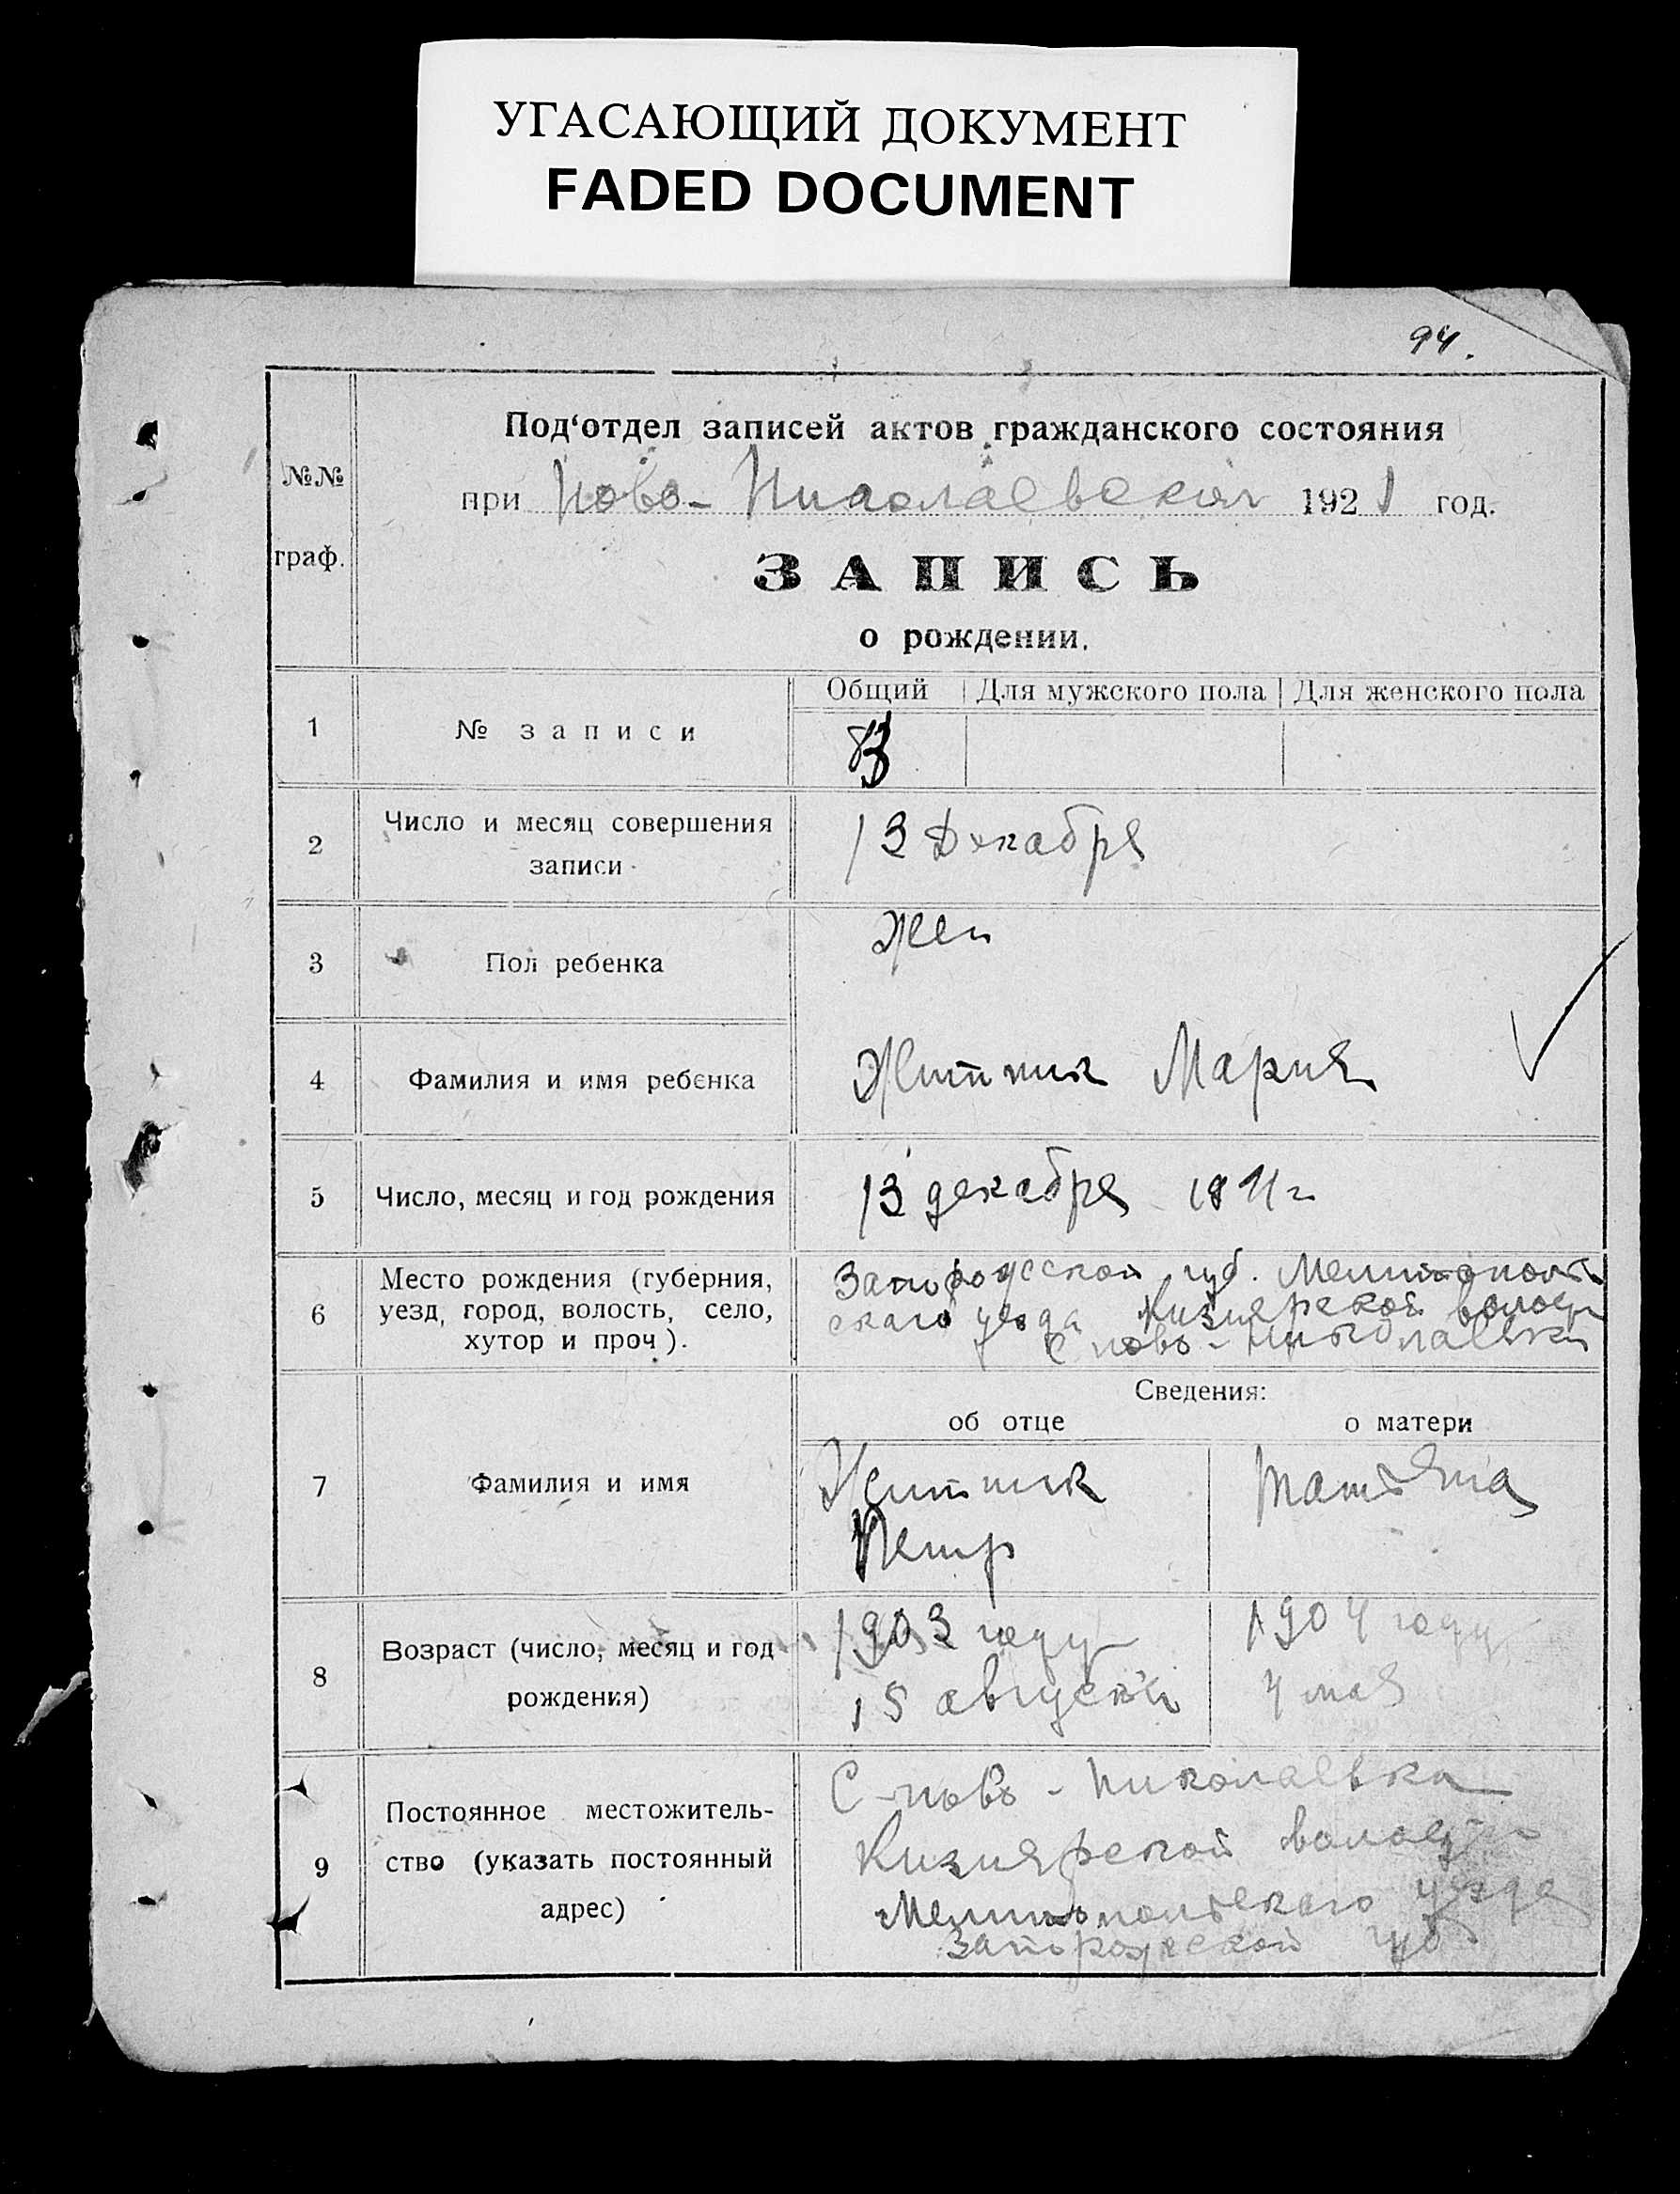 УГАСАЮЩИЙ ДОКУМЕНТ
FADED DOCUMENT
94.
№№ граф.
Под‘отдел записей актов гражданского состояния
при Ново-Николаевской 1921 год.
ЗАПИСЬ
о рождении.
Общий Для мужского пола Для женского пола
1 № записи
2 Число и месяц совершения записи 13 Декабря
3 Пол ребенка Жен
4 Фамилия и имя ребенка Житник Мария
5 Число, месяц и год рождения 13 декабря
6 Место рождения (губерния, уезд, город, волость, село, хутор и проч).
Запорожской губ. Мелитополь
скаго уезда Кизиярской волости
С Ново-Николаевки
Сведения:
об отце о матери
7 Фамилия и имя
Житник Татьяна
Петр
8 Возраст (число, месяц и год рождения)
1903 году 1904 году
15 августа 4 мая
9 Постоянное местожитель-
ство (указать постоянный
адрес)
С Ново-Николаевка
Кизиярской волости
Мелитопольскаго уезда
Запорожской губ